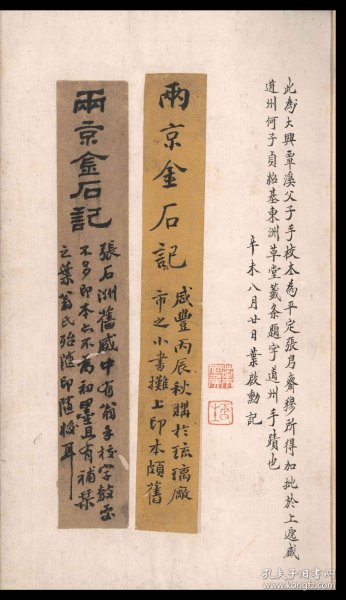 此為大興覃溪父子手校本為平定張月齋穆所得加批於上遞藏
道州何子貞紹基東洲草堂籤條題字道州手蹟也
辛未八月廿日葉啟勳記
兩京金石記
咸豐丙辰秋購於琉璃廠
市之小書攤上印本頗舊
兩京金石記
張石洲舊藏中有翁手校字數處
不多印本亦不為初墨且有補槧
之葉翁氏殆隨印隨校耳
孔夫子旧书网